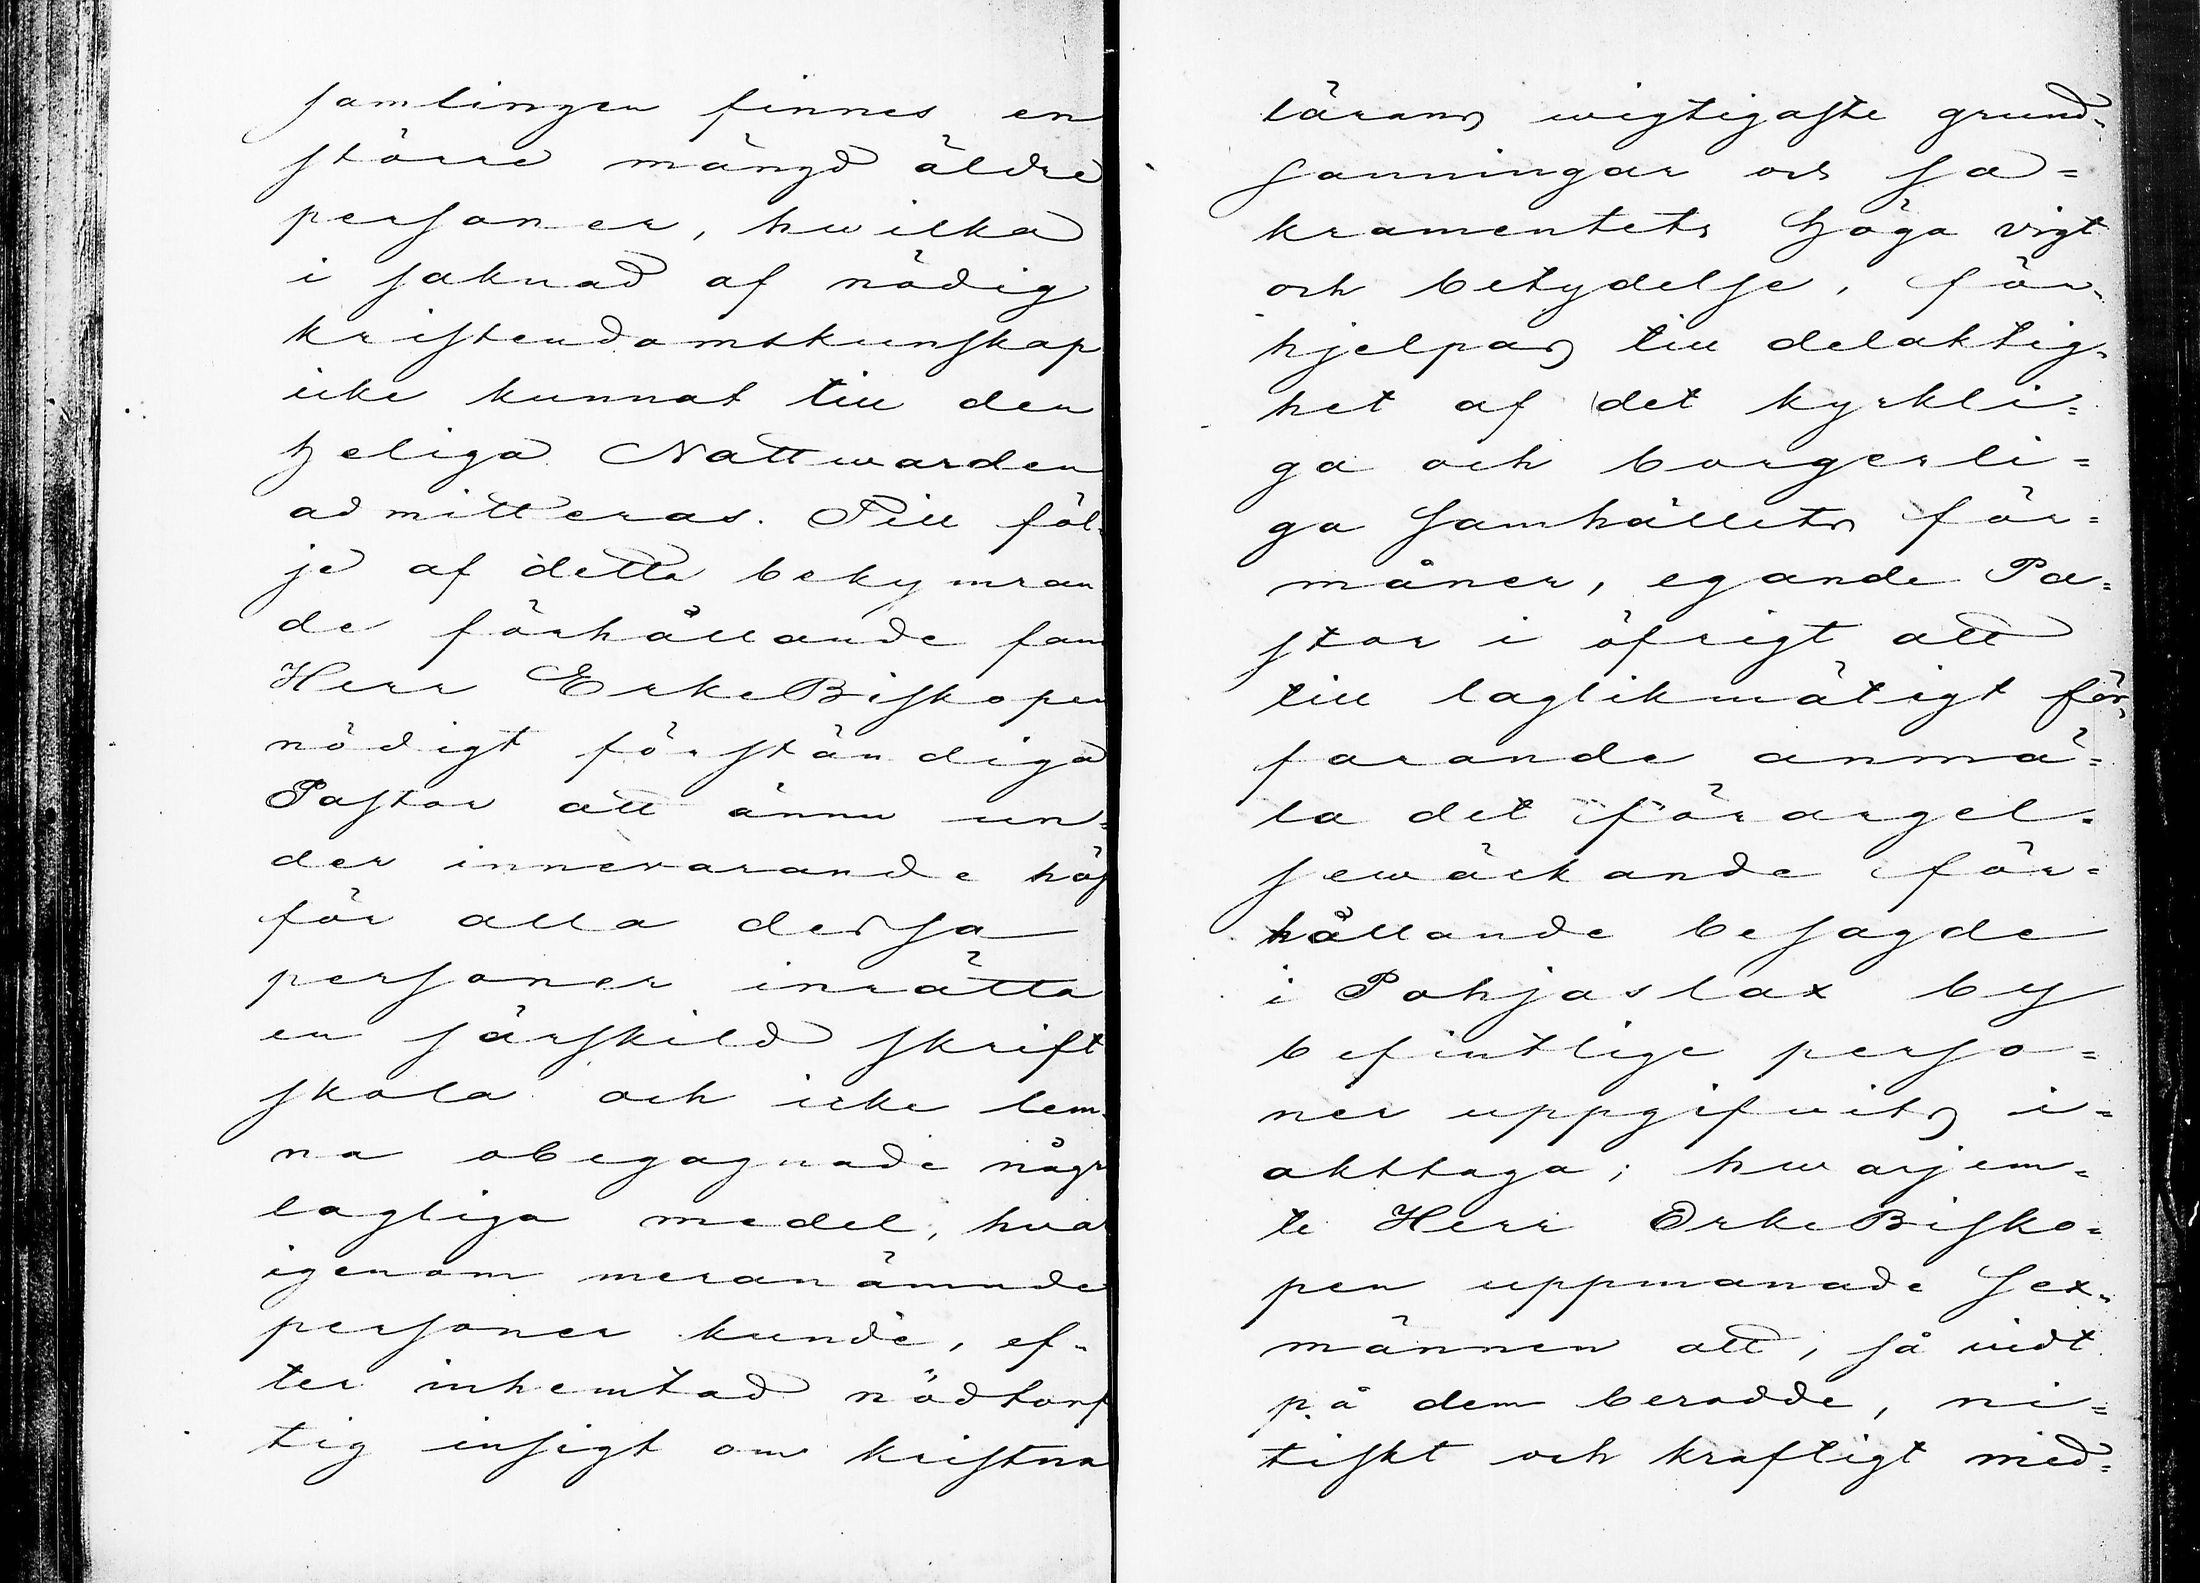 samlingen finnes en
större mängd äldre
personer, hwilka
i saknad af nödig
kristendomskunskap
icke kunnat till den
heliga Nattwarden
admitteras. Till föl-
je af detta bekymran
de förhållande fann
Herr ErkeBiskopen
nödigt förständiga
Pastor att ännu un-
der innevarande hös
för alla dessa
personer inrätta
en särskild skrift
skola och icke lem-
na obegagnade någr
lagliga medel, hva
igenom meranämnde
personer kunde, ef-
ter inhemtad nödtorf
tig insigt om kristna
lärans wigtigaste grund-
sanningar och sa=
kramentets höga vigt
och betydelse, för-
hjelpas till delaktig-
het af det kyrkli=
ga och borgerli=
ga samhällets för=
måner, egande Pa=
stor i öfrigt att
till laglikmätigt för-
farande anmä=
la det förargel-
sewäckande för=
hållande besagde
i Pohjaslax by
befintlige perso=
ner uppgifvits i=
akttaga; hwarjem=
te Herr ErkeBisko=
pen uppmanade Sex-
männen att, så vidt
på dem berodde, ni=
tiskt och kraftigt med=